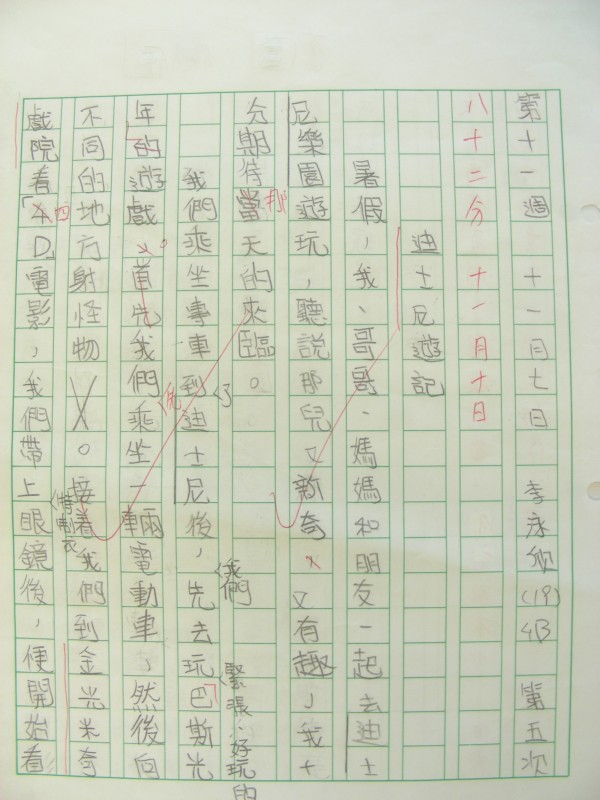 第十一週 十一月七日 李永欣(19) 4B 第五次
八十二分 十一月十日
迪士尼遊記
暑假,我、哥哥、媽媽和朋友一起去迪士
尼樂園遊玩,聽說那兒又新奇又有趣,我十
分期待當那天的來臨。
我們乘坐專車到了迪士尼後,我們先去玩緊張、好玩的巴斯光
年的遊戲。首先我們乘坐一輛電動車,然後向
不同的地方射怪物。接着我們到金光米奇
戲院看「4四D」電影,我們帶上特制衣眼鏡後,便開始看